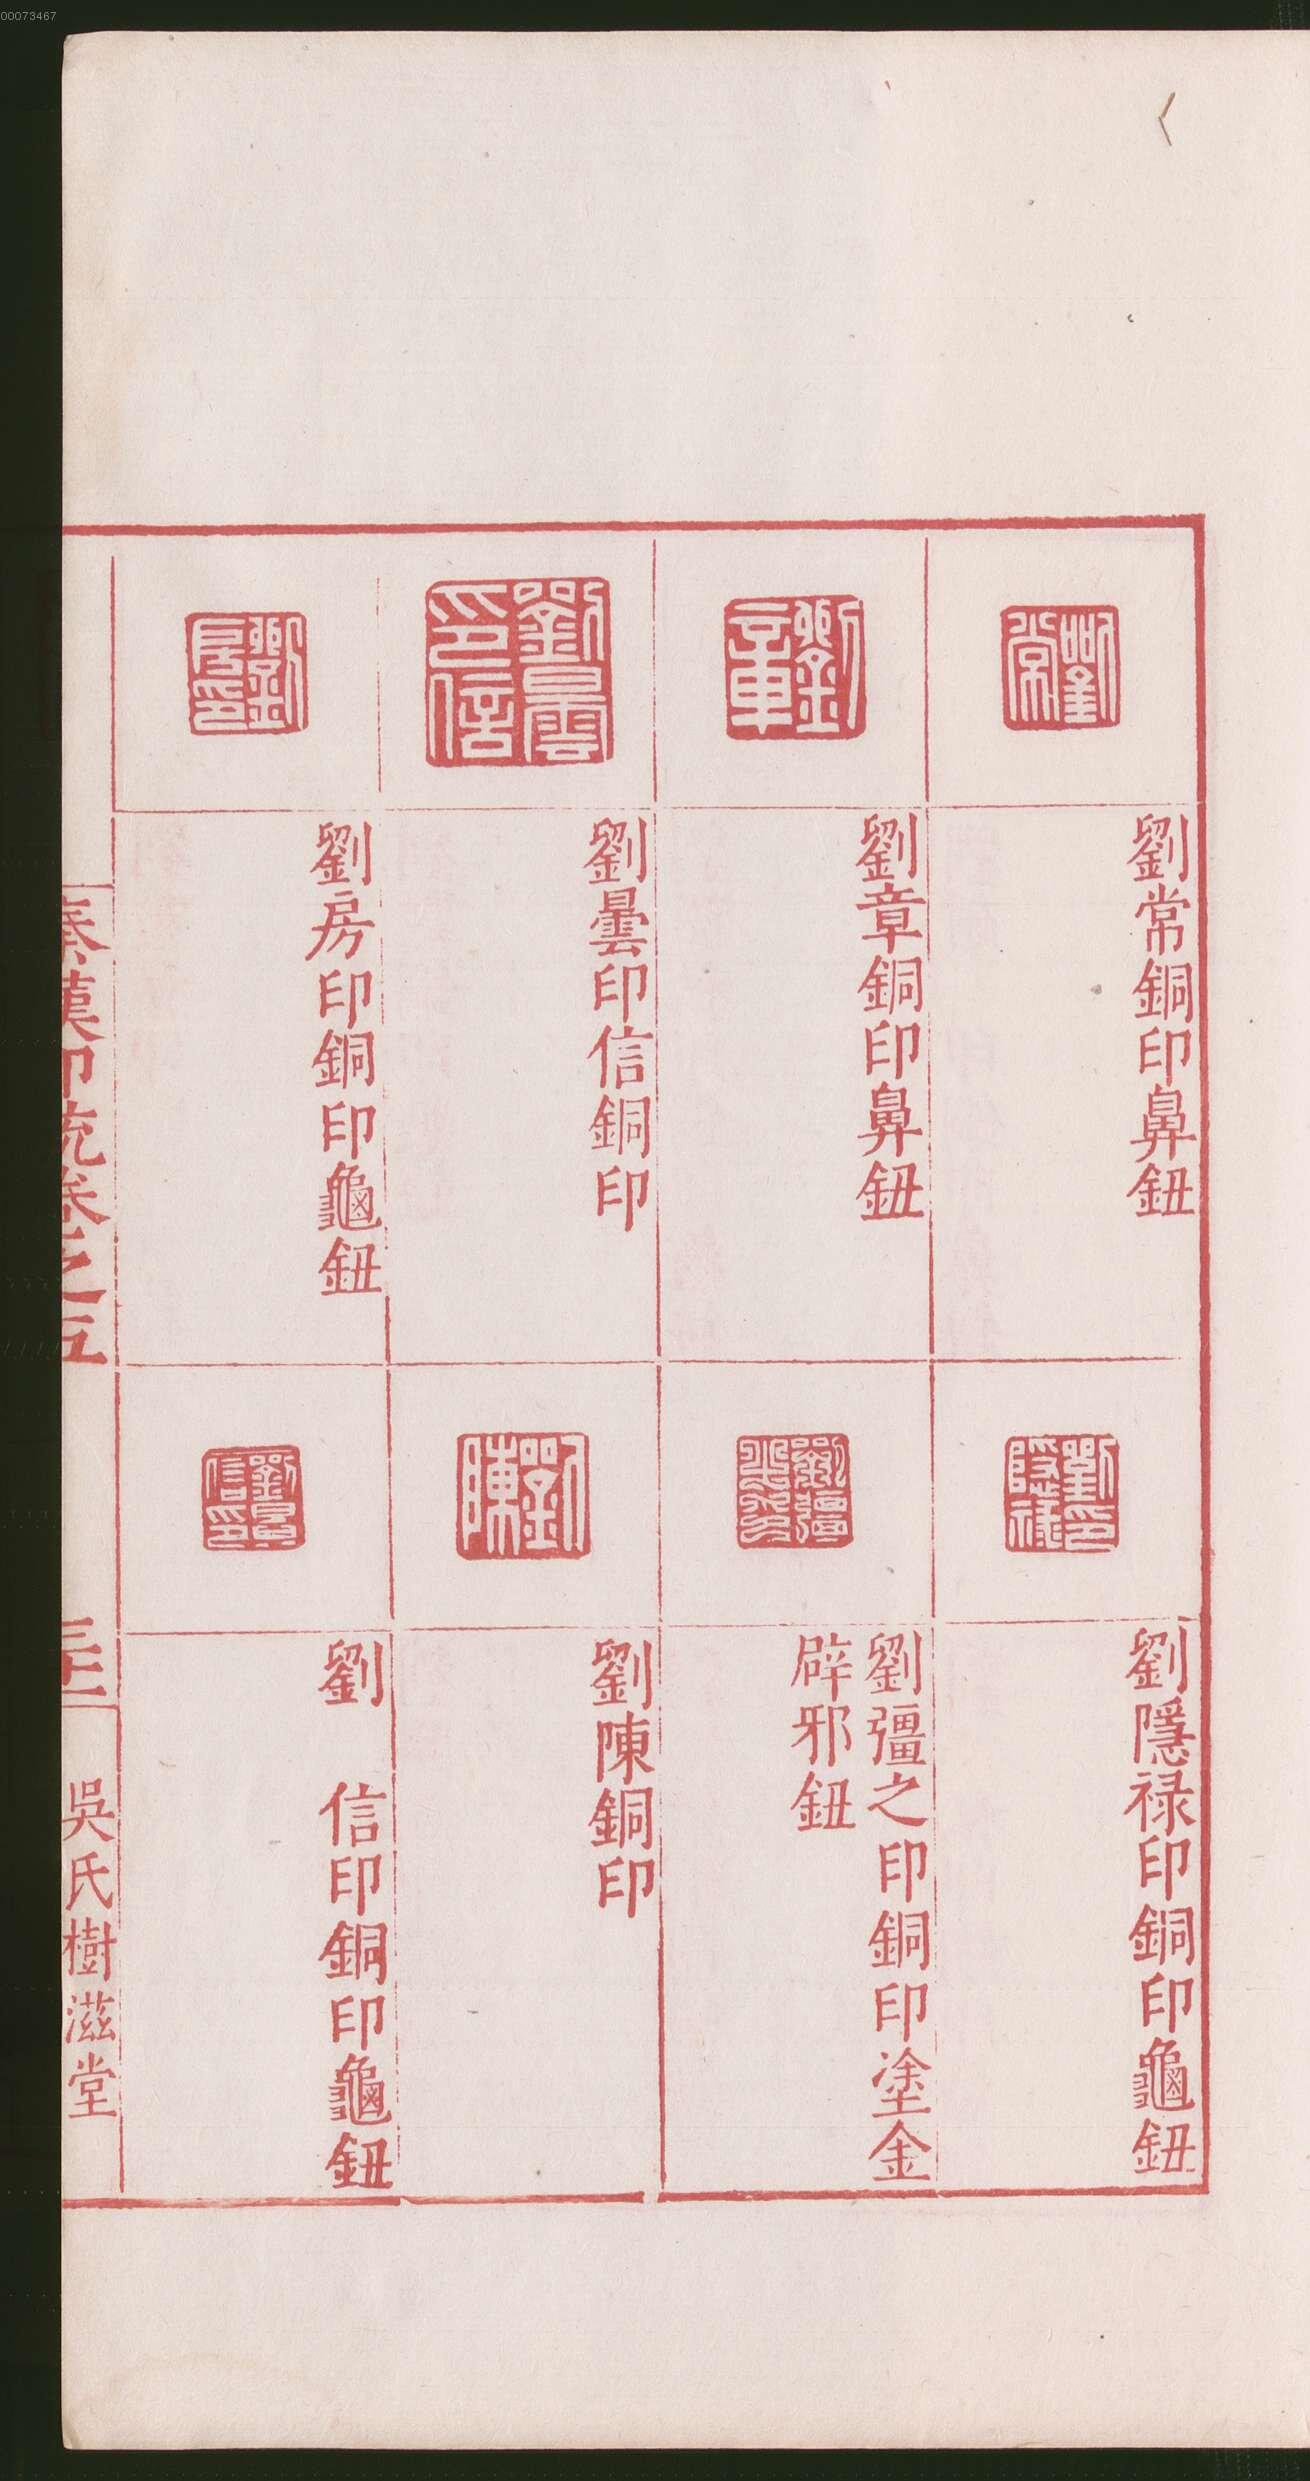 00073467
劉常
劉常銅印鼻鈕
劉章
劉章銅印鼻鈕
劉曇印信
劉曇印信銅印
劉房印
劉房印銅印龜鈕
劉隱祿印
劉隱祿印銅印龜鈕
劉彊之印
劉彊之印銅印塗金
辟邪鈕
劉陳
劉陳銅印
劉 信印
劉 信印銅印龜鈕
秦漢印統卷之五
吳氏樹滋堂